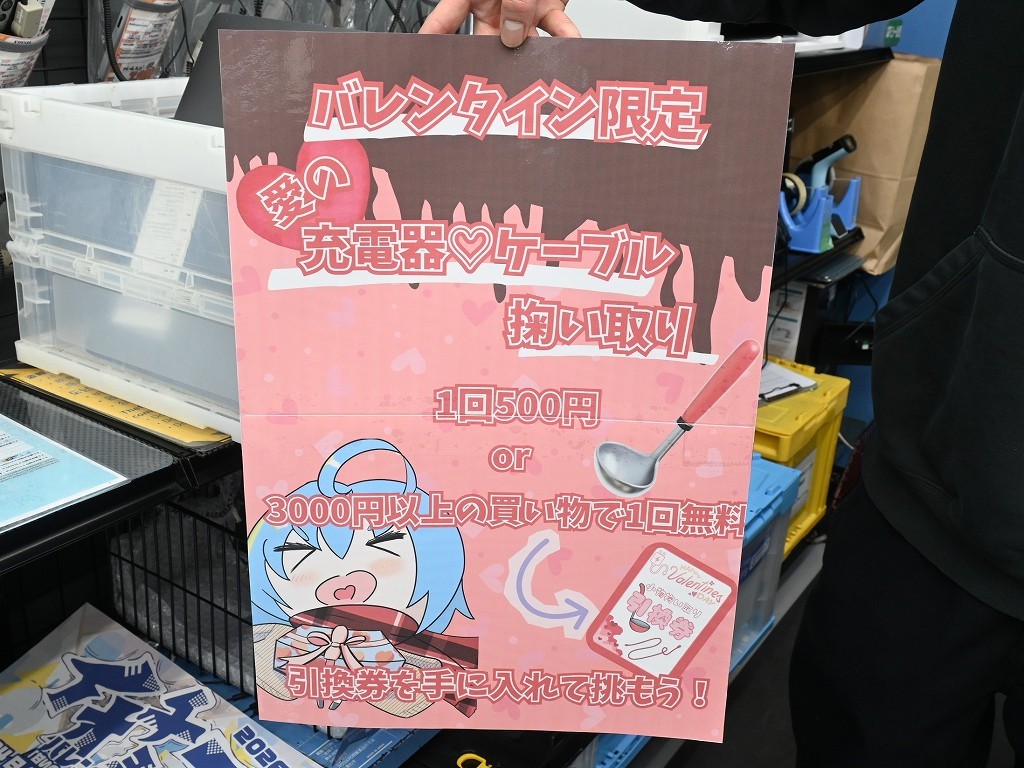 バレンタイン限定
愛の
充電器♡ケーブル
掬い取り
1回500円
or
3000円以上の買い物で1回無料
Valentines
DAY
引換券
引換券を手に入れて挑もう！
2026